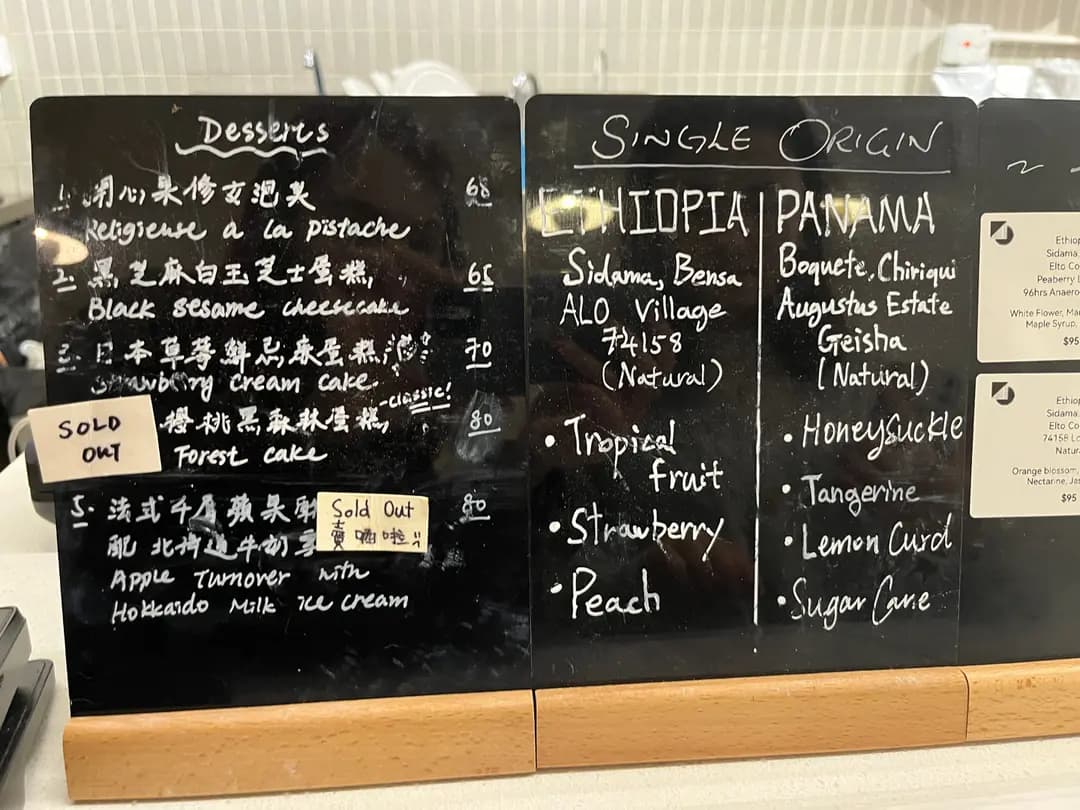 Desserts
1. 開心果修女泡芙 68
Religieuse a la pistache
2. 黑芝麻白玉芝士蛋糕 65
Black sesame cheesecake
3. 日本草莓鮮忌廉蛋糕 70
Strawberry cream cake
-classic!
SOLD
OUT
櫻桃黑森林蛋糕 80
Forest cake
5. 法式千層蘋果 80
Sold Out
賣晒啦
配北海道牛奶
Apple Turnover with
Hokkaido Milk Ice cream
SINGLE ORIGIN
ETHIOPIA
Sidama, Bensa
ALO Village
74158
(Natural)
• Tropical
fruit
• Strawberry
• Peach
PANAMA
Boquete, Chiriqui
Augustus Estate
Geisha
(Natural)
• Honeysuckle
• Tangerine
• Lemon Curd
• Sugar Cane
~
Ethiop
Sidama
Elto Co
Peaberry
96hrs Anaero
White Flower, Ma
Maple Syrup,
$95
Ethiop
Sidama
Elto Co
74158 Lo
Natur
Orange blossom,
Nectarine, Jas
$95